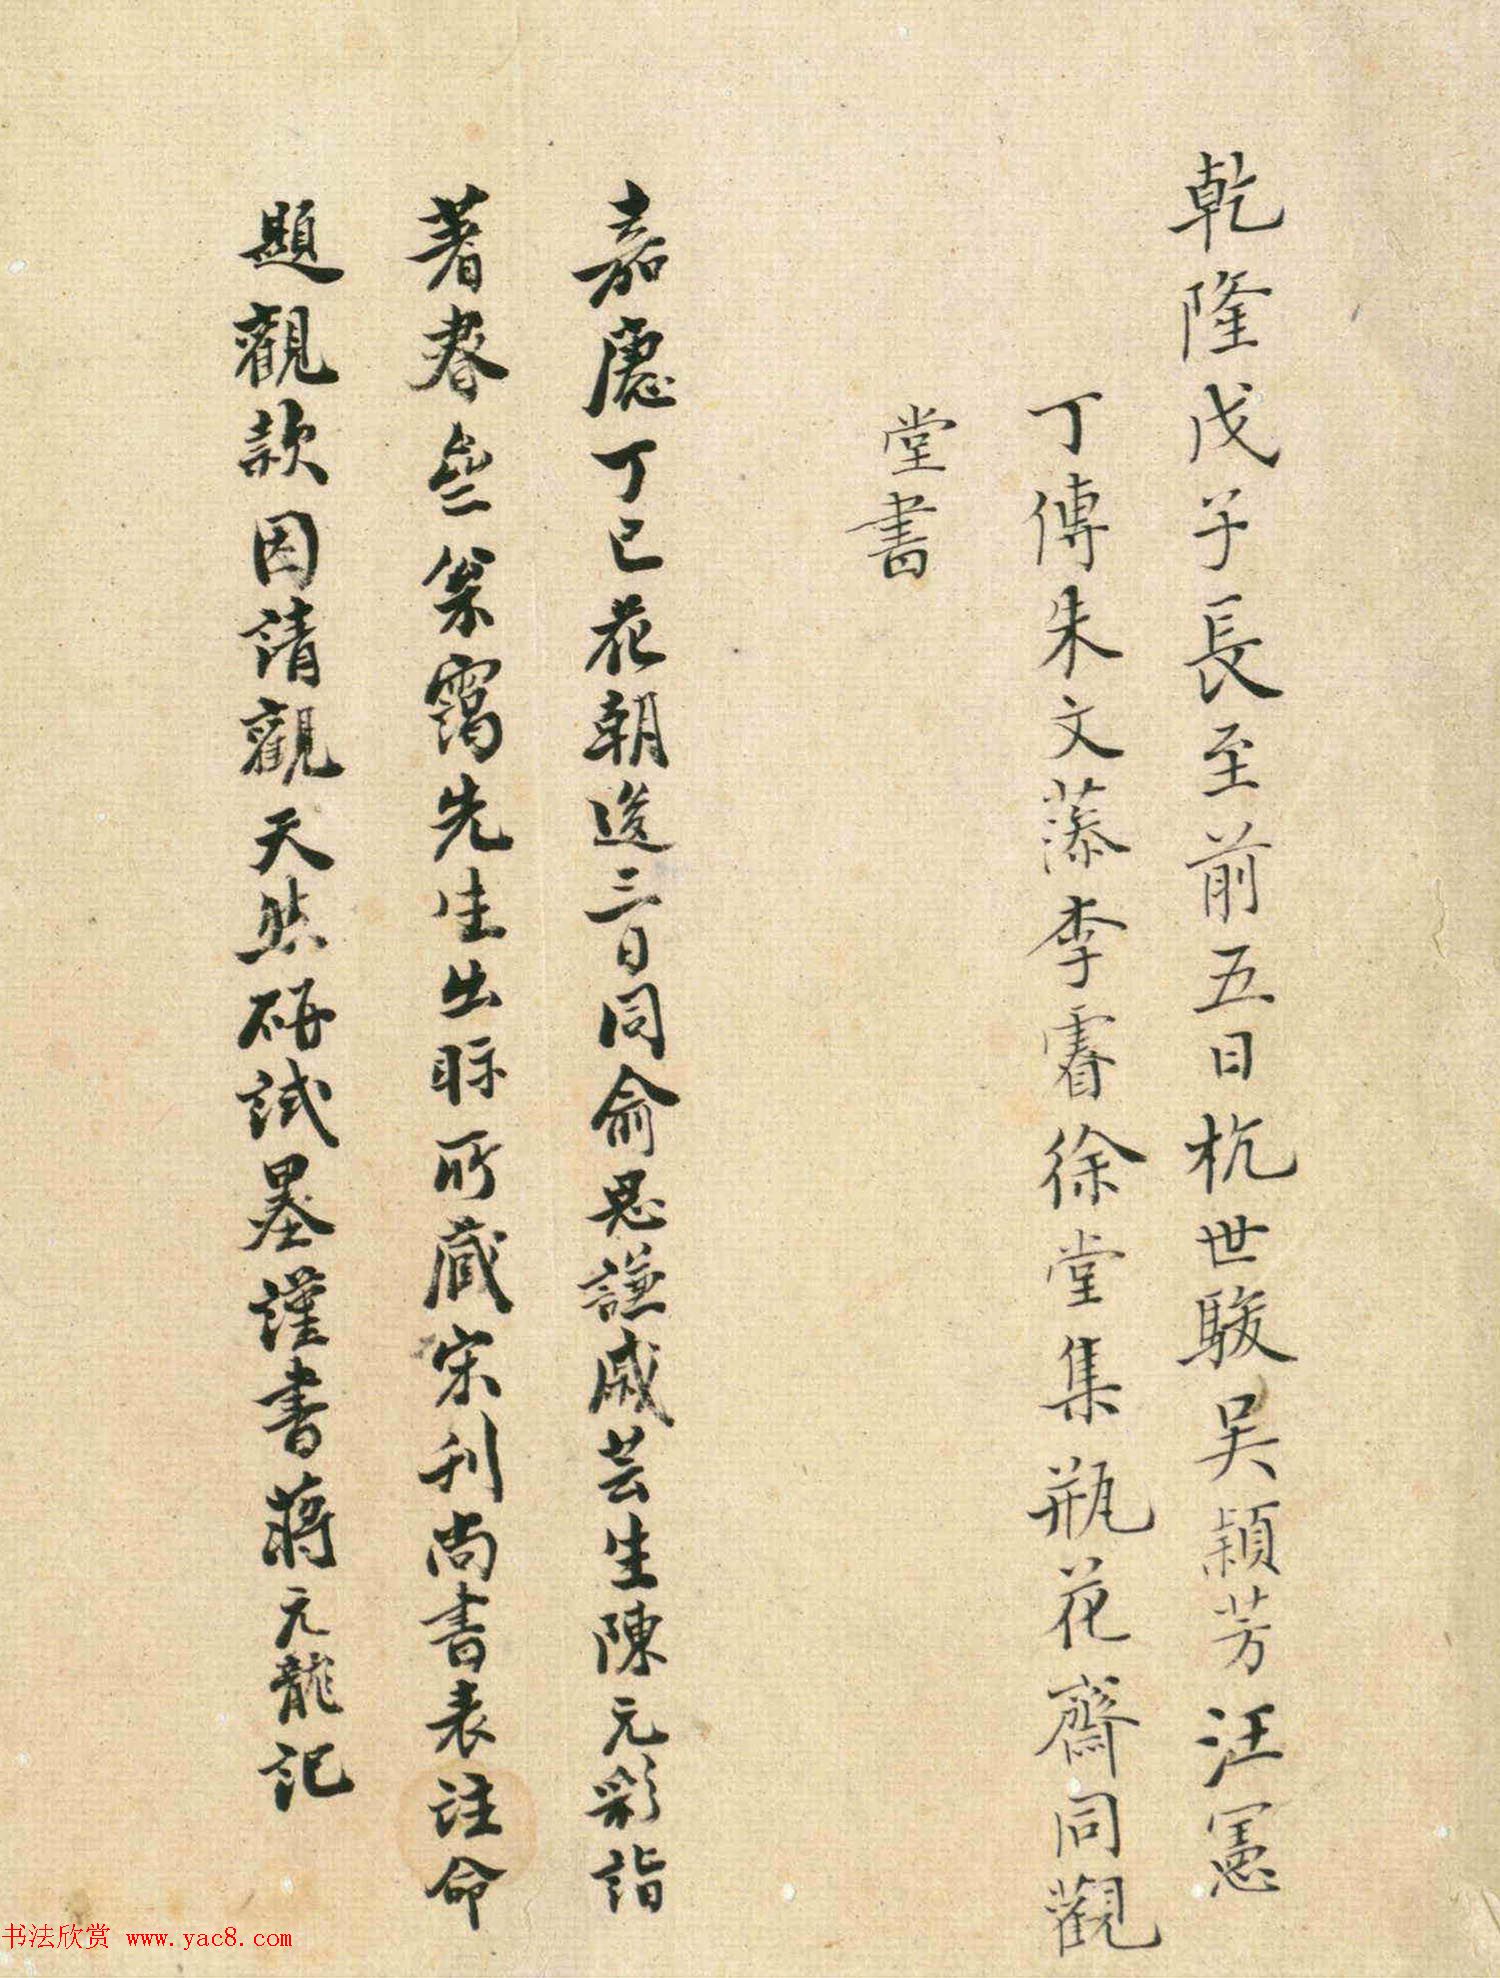 乾隆戊子長至前五日杭世駿吳穎芳汪憲
丁傳朱文藻李睿徐堂集瓶花齋同觀
堂書
嘉慶丁巳花朝後三日同俞思謙戚芸生陳元彩詣
著春叅翁靄先生出眎所藏宋刊尚書表注命
題觀款因請觀天然硏試墨謹書蔣元龍記
书法欣赏 www.yac8.com